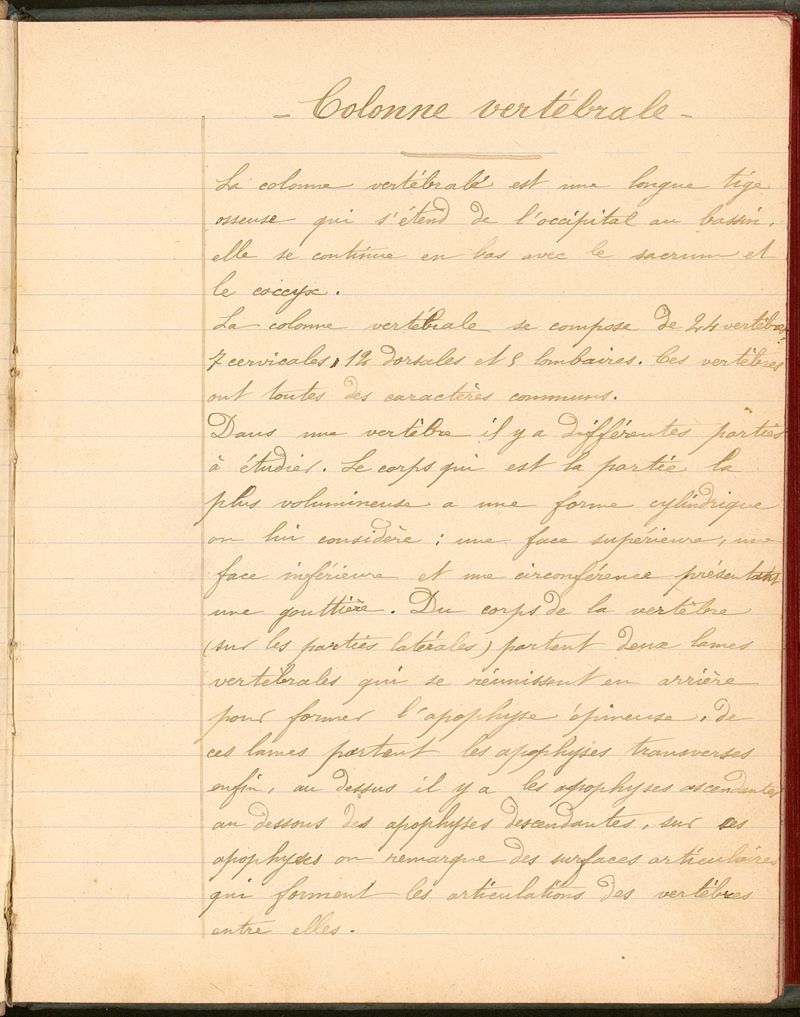 - Colonne vertébrale -
La colonne vertébrale est une longue tige
osseuse qui s'étend de l'occipital au bassin,
elle se continue en bas avec le sacrum et
le coccyx.
La colonne vertébrale se compose de 24 vertèbres
7 cervicales, 12 dorsales et 5 lombaires. Ces vertèbres
ont toutes des caractères communs.
Dans une vertèbre il y a différentes parties
à étudier. Le corps qui est la partie la
plus volumineuse a une forme cylindrique
on lui considère : une face supérieure, une
face inférieure et une circonférence présentant
une gouttière. Du corps de la vertèbre
(sur les parties latérales) partent deux lames
vertébrales qui se réunissent en arrière
pour former l'apophyse épineuse, de
ces lames partent les apophyses transverses
enfin, au dessus il y a les apophyses ascendantes
au dessous des apophyses descendantes, sur ces
apophyses on remarque des surfaces articulaires
qui forment les articulations des vertèbres
entre elles.